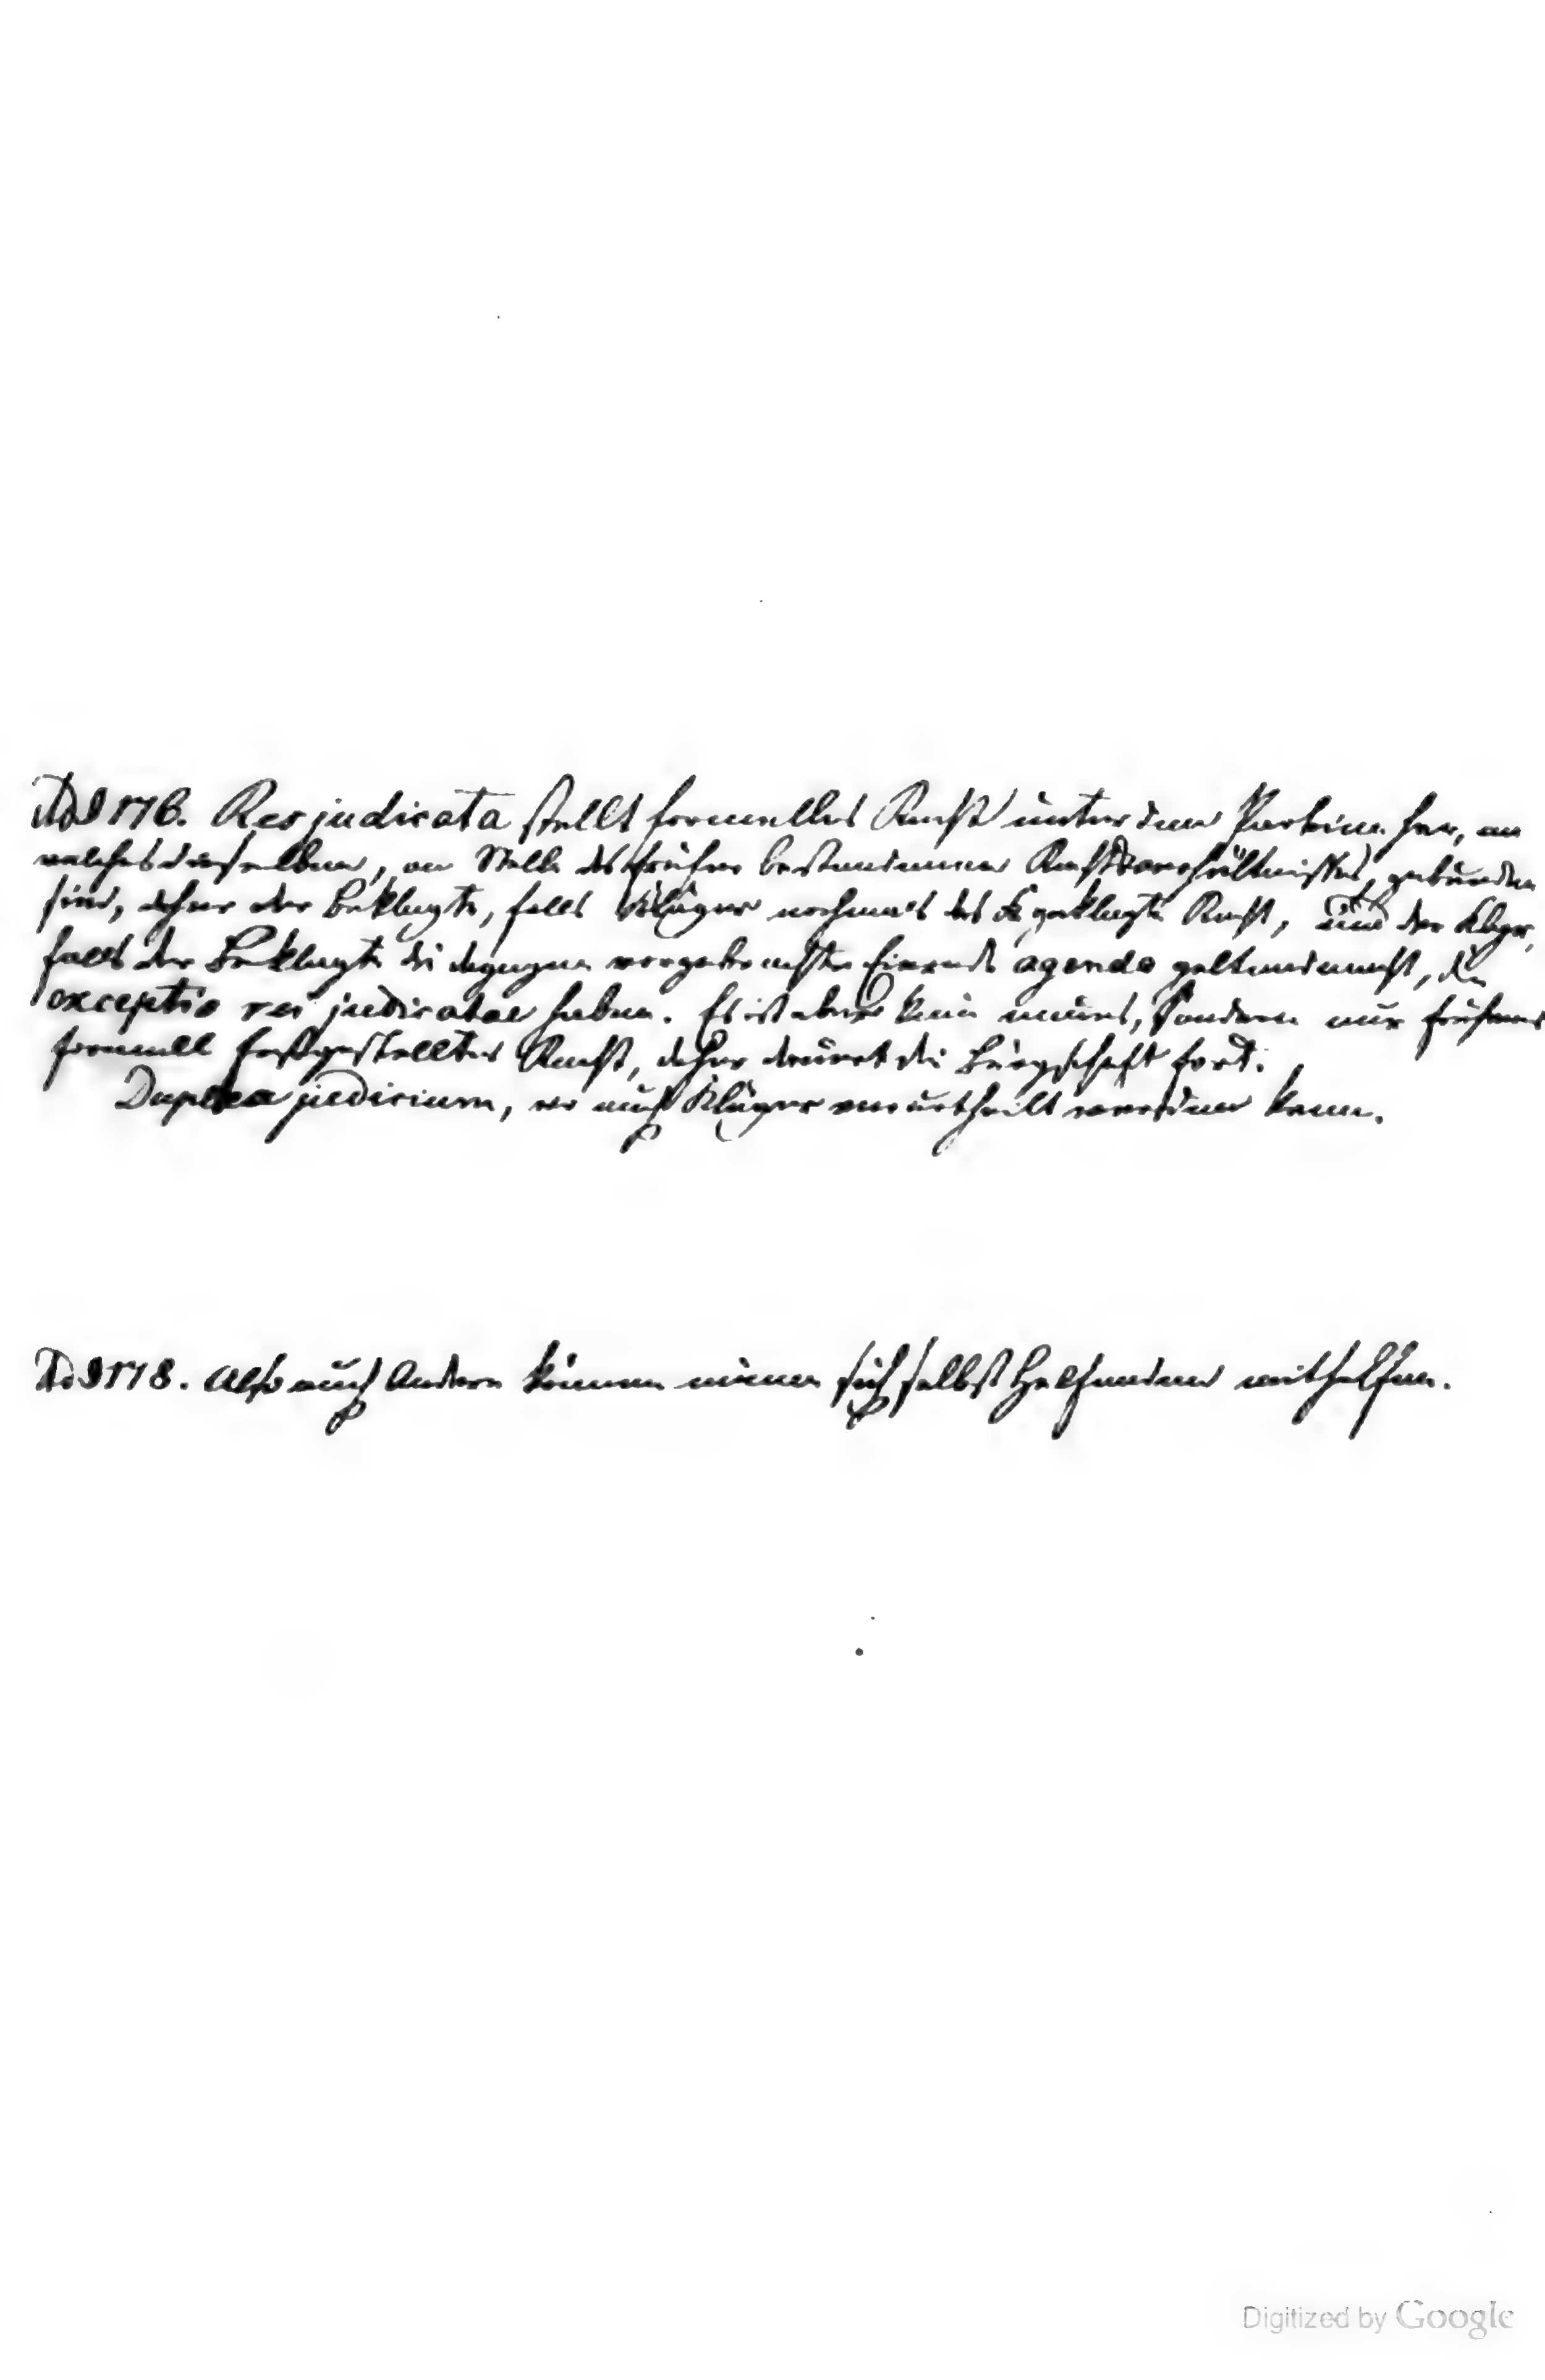 Ad § 176. Res judicata stellt formelles Recht unter den Parteien her, an
welches dieselben, an Stelle des früher bestandenen Rechtsverhältnisses, gebunden
sind, daher der Beklagte, falls Kläger nochmals das geklagte Recht, und der Kläger,
falls der Beklagte die dagegen vorgebrachte Einrede agendo geltend macht, die
exceptio rei judicatae haben. Es ist aber kein neues, sondern nur früheres
formell festgestelltes Recht, daher dauert die Bürgschaft fort.
Duplex judicium, wo auch Kläger verurtheilt werden kann.
Ad § 178. Also auch Andere können einem sich selbst Helfenden mithelfen.
Digitized by Google